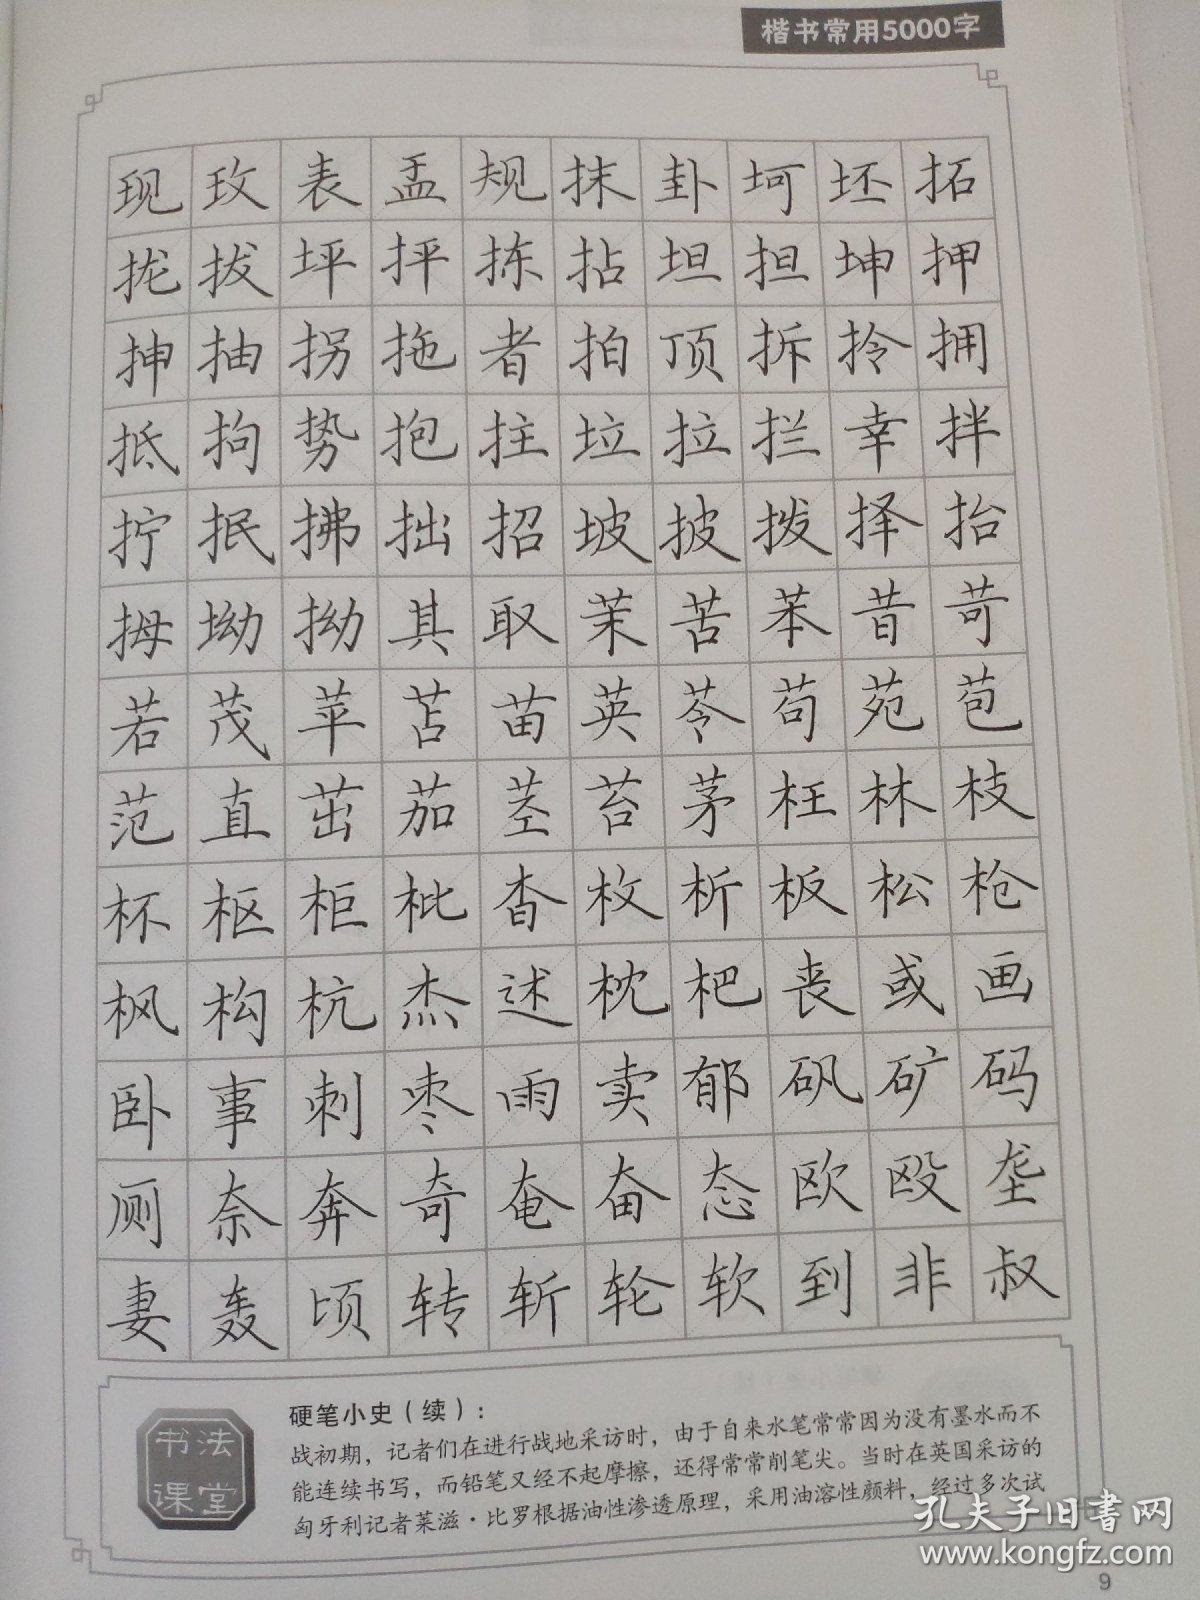 楷书常用5000字
现玫表盂规抹卦坷坯拓
拢拔坪抨拣拈坦担坤押
抻抽拐拖者拍顶拆拎拥
抵拘势抱拄垃拉拦幸拌
拧抿拂拙招坡披拨择抬
拇坳拗其取茉苦苯昔苛
若茂苹苫苗英苓苟苑苞
范直茁茄茎苔茅枉林枝
杯枢柜枇杳枚析板松枪
枫构杭杰述枕杷丧或画
卧事刺枣雨卖郁矾矿码
厕奈奔奇奄奋态欧殴垄
妻轰顷转斩轮软到非叔
书法
课堂
硬笔小史（续）：
战初期，记者们在进行战地采访时，由于自来水笔常常因为没有墨水而不
能连续书写，而铅笔又经不起摩擦，还得常常削笔尖。当时在英国采访的
匈牙利记者莱滋·比罗根据油性渗透原理，采用油溶性颜料，经过多次试
孔夫子旧书网
www.kongfz.com
9